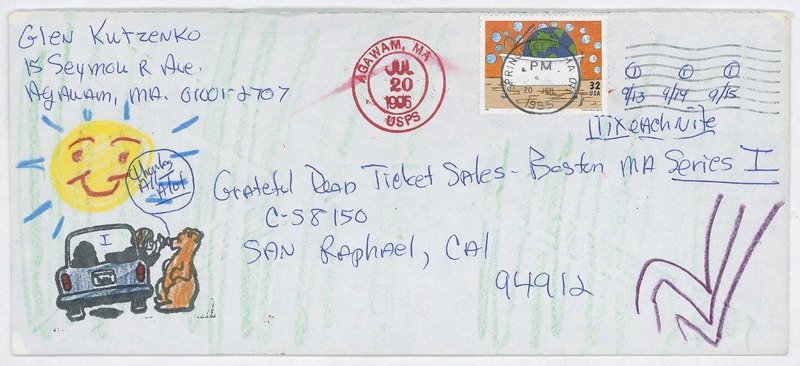 Glen Kutzenko
15 Seymour Ave.
Agawam, MA. 01001-2707
AGAWAM, MA
JUL
20
1995
USPS
PM
20 JUL
1995
32
USA
1 1 1
9/13 9/14 9/15
IIIX EACH Nite
Thanks
Alot
Alot
Grateful Dead Ticket Sales - Boston MA Series I
C-S8150
SAN Raphael, CAl
94912
I